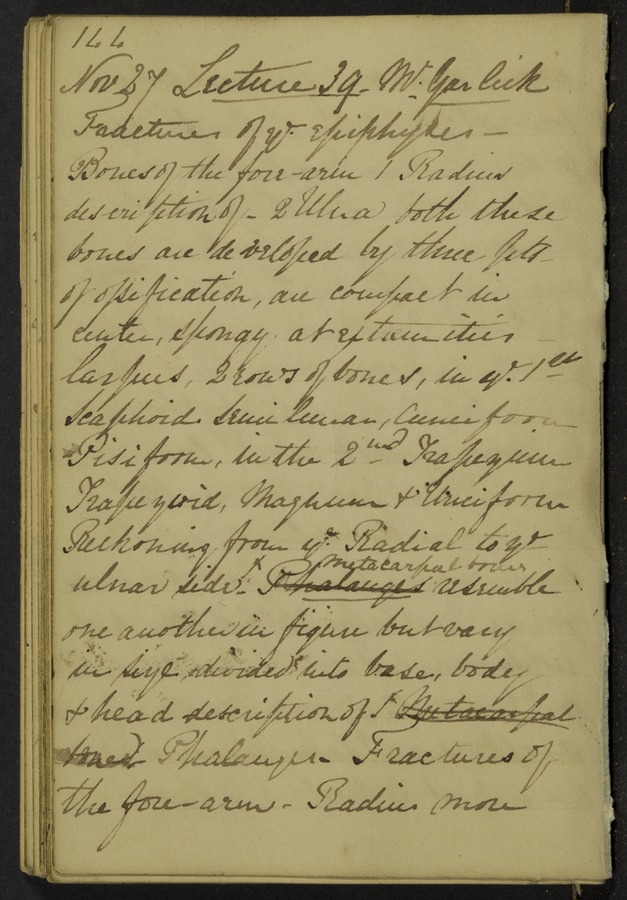 144
Nov 27 Lecture 39 - Mr. Garlick
Fractures of ye Epiphyses -
Bones of the fore-arm 1 Radius
description of - 2 Ulna both these
bones are developed by three pts
of ossification, are compact in
center, spongy at extremities -
Carpus, 2 rows of bones, in ye. 1st
Scaphoid Semilunar, Cuneiform
Pisiform, in the 2nd Trapezium
Trapezoid, Magnum & Unciform
Reckoning from ye Radial to ye
metacarpal bones
ulnar side. Phalanges resemble
one another in figure but vary
in size, divided into base, body
& head description of Metacarpal
bones Phalanges - Fractures of
the fore-arm - Radius more